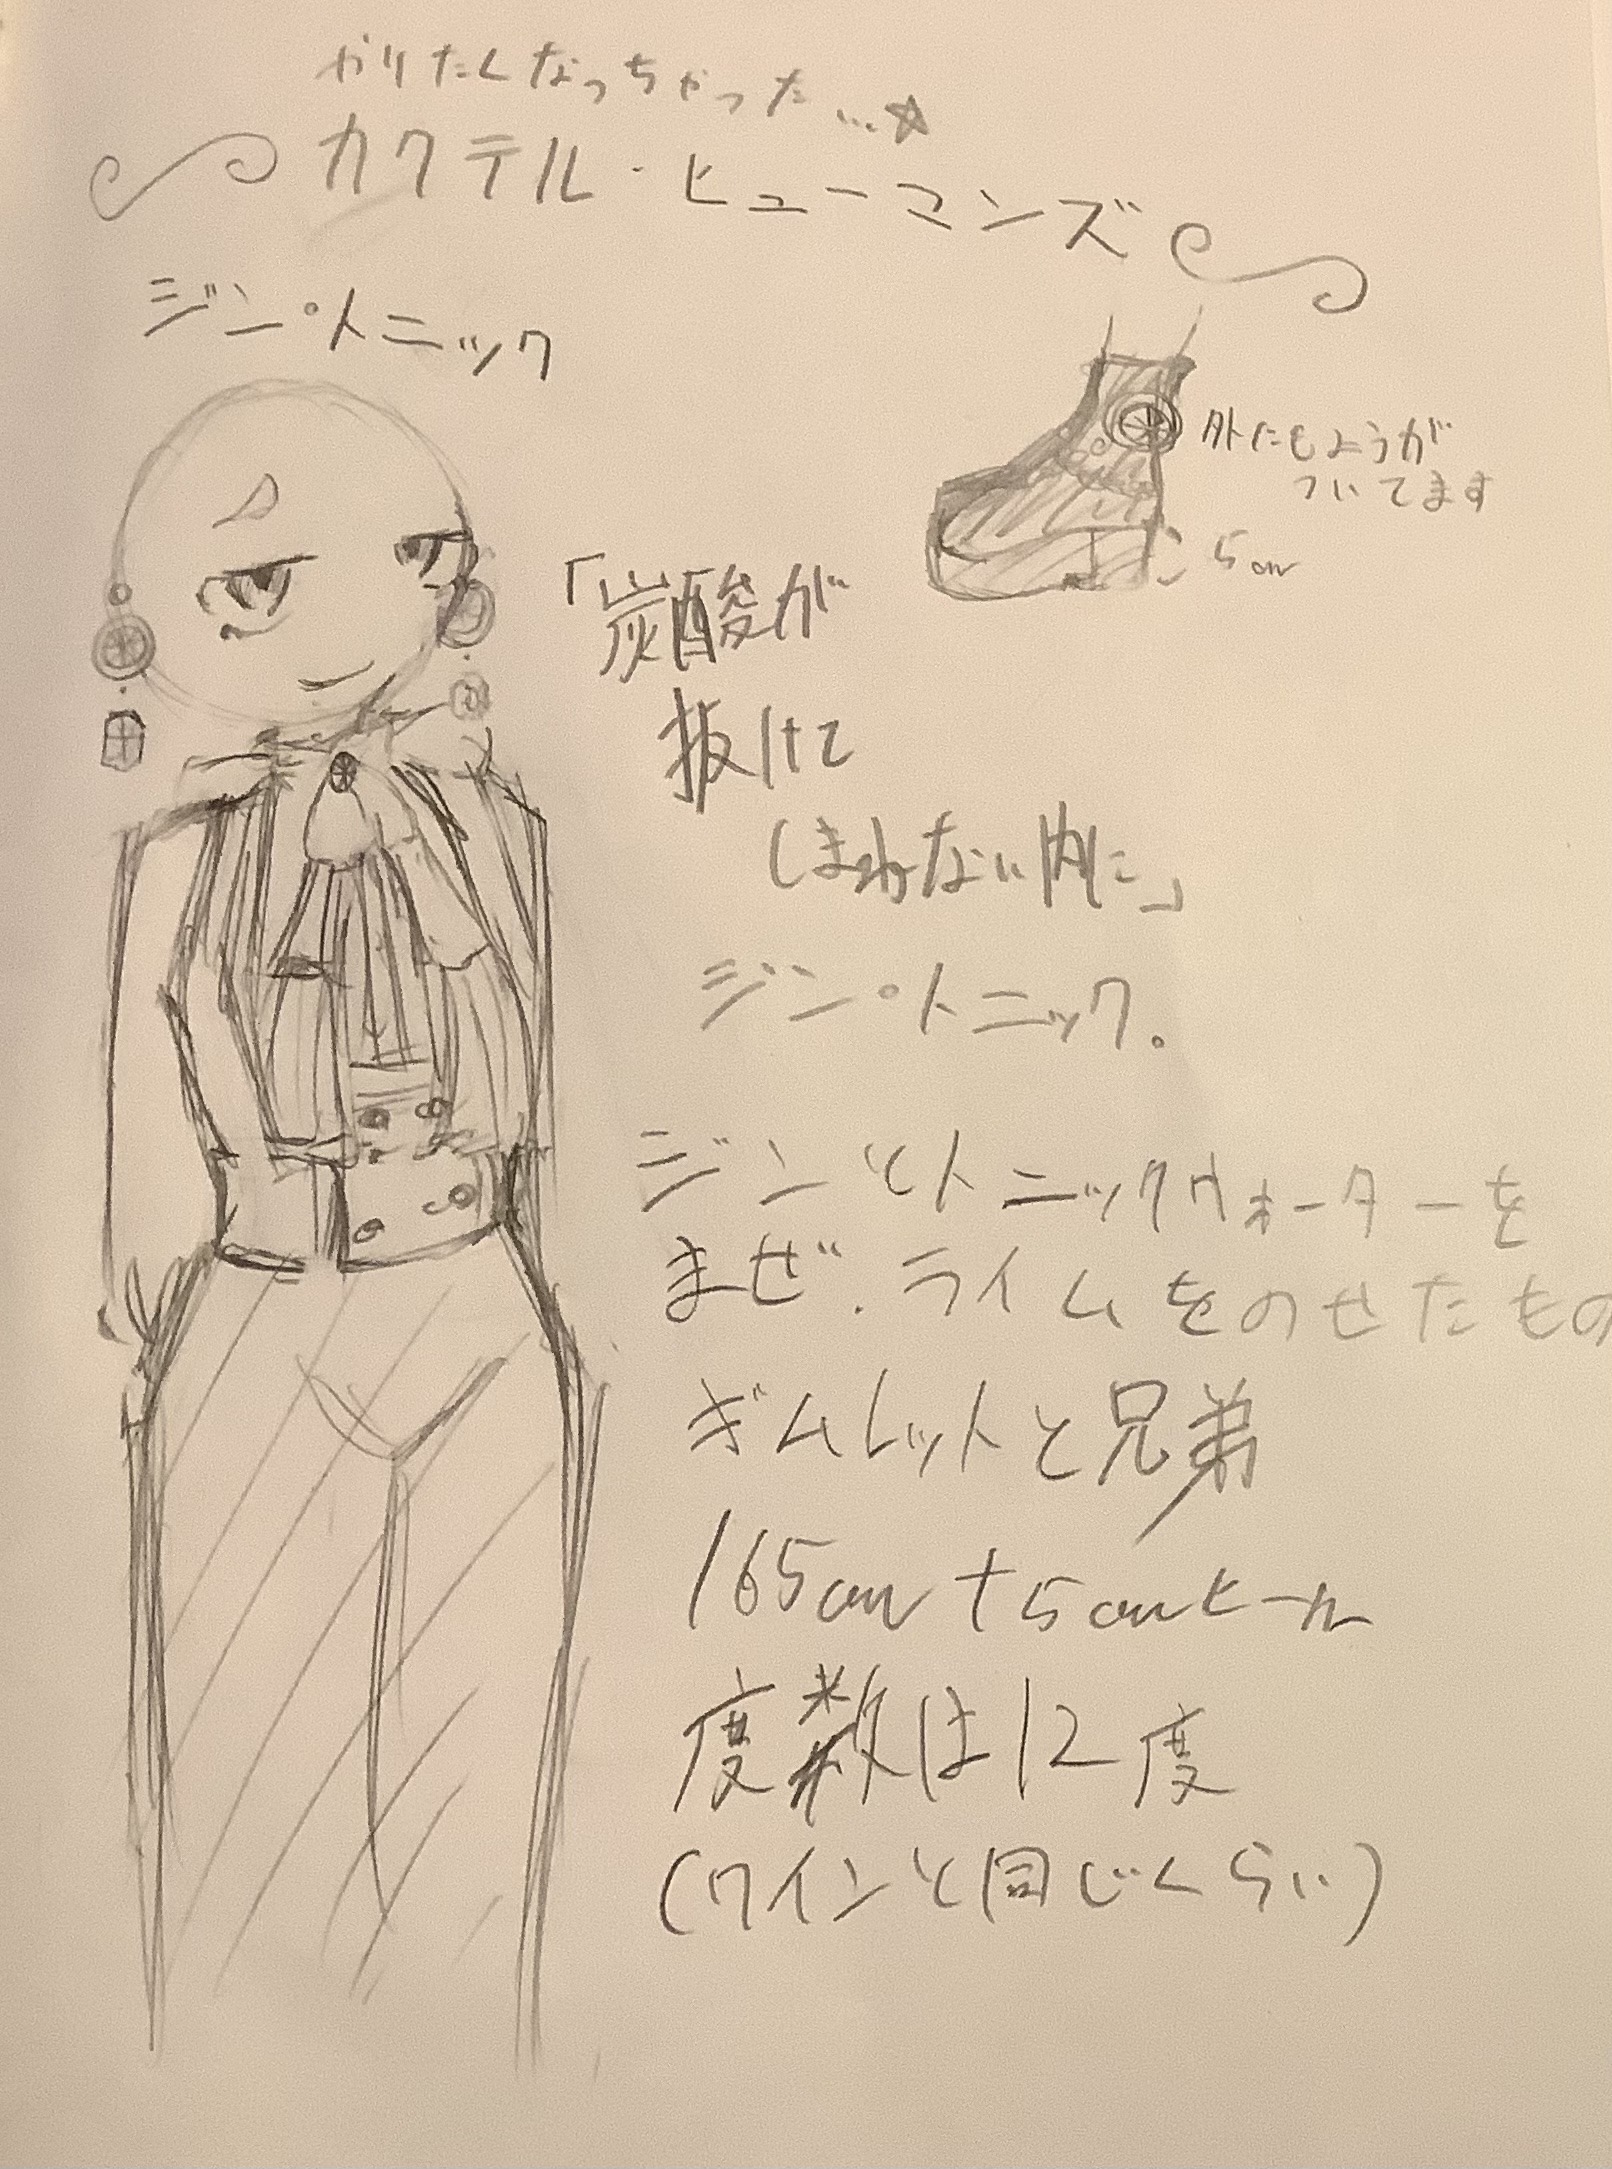 やりたくなっちゃった…☆
カクテル・ヒューマンズ
ジン・トニック
外にもようが
ついてます
5cm
「炭酸が
抜けて
しまわない内に」
ジン・トニック.
ジンとトニックウォーターを
まぜ.ライムをのせたもの
ギムレットと兄弟
165cm+5cmヒール
度数は12度
(ワインと同じくらい)